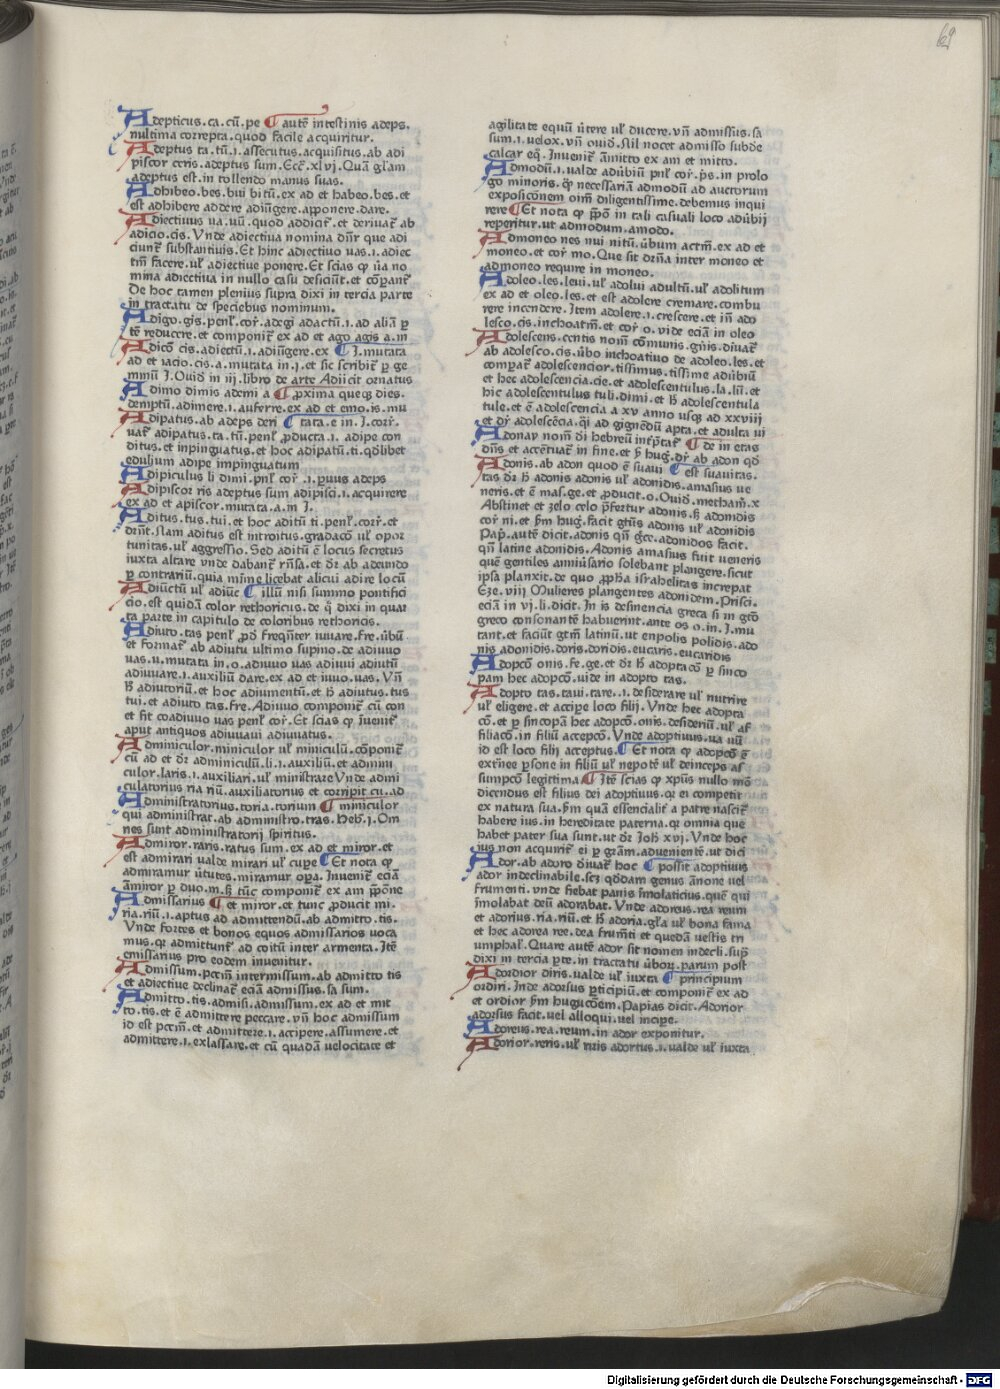 69
Adepticus.ca.cū.pe ¶ autē intestinis adeps.
nultima correpta.quod facile acquiritur.
Adeptus ta.tū.i.assecutus.acquisitus.ab adi
piscor ceris.adeptus sum.Ecc̄.xlvj.Quā gl'am
adeptus est.in tollendo manus suas.
Adhibeo.bes.bui bitū.ex ad et habeo.bes.et
est adhibere addere adiūgere.apponere.dare.
Adiectiuus ua.uū.quod addicit᷑.et deriuat᷑ ab
adicio.cis.Vnde adiectiua nomina dn̄r que adi
ciunt᷑ substantiuis.Et hinc adiectiuo uas.i.adiec
tm̄ facere.ul' adiectiue ponere.Et scias ꝙ ūa no
mina adiectiua in nullo casu deficiūt.et cōparant᷑
De hoc tamen plenius supra dixi in tercia parte
in tractatu de speciebus nominum.
Adigo.gis.penl'.cor᷑.adegi adactū.i.ad aliā p
tē reducere.et componit᷑ ex ad et ago agis a.in
Adicō cis.adiectū.i.adiūgere.ex ¶ J.mutata
ad et iacio.cis.a.mutata in.j.et sic scribit᷑ p ge
minū J.Ouid in iij.libro de arte Adiicit ornatus
Adimo dimis ademi a ¶ ꝓxima queqꝫ dies.
demptū.adimere.i.auferre.ex ad et emo.is.mu
Adipatus.ab adeps deri ¶ tata.e in.J.corr᷑.
uat᷑ adipatus.ta.tū.penl'.ꝓducta.i.adipe con
ditus.et inpinguatus.et hoc adipatū.ti.qd̄libet
edulium adipe impinguatum
Adipiculus li dimi.pnl' cor᷑ .i.puus adeps
Adipiscor ris adeptus sum adipisci.i.acquirere
ex ad et apiscor.mutata.a.in J.
Aditus.tus.tui.et hoc aditū ti.penl'.corr᷑.et
dr̄nt̄.Nam aditus est introitus.gradacō ul' opor
tunitas.ul' aggressio.Sed aditū ē locus secretus
iuxta altare vnde dabant᷑ rn̄sa.et dr᷑ ab adeundo
p contrariū.quia mīme licebat alicui adire locū
Adiūctū ul' adiūc ¶ illū nisi summo pontifici
cio.est quidā color rethoricus.de q̄ dixi in quar
ta parte in capitulo de coloribus rethoricis.
Adiuto.tas penl' ꝓd̄ freqn̄ter iuuare.fre.ūbū
et format᷑ ab adiutu ultimo supino.de adiuuo
uas.u.mutata in.o.adiuuo uas adiuui adiutū
adiuuare.i.auxiliū dare.ex ad et iuuo.uas.Vn̄
h̄ adiutoriū.et hoc adiumentū.et h̄ adiutus.tus
tui.et adiuto tas.fre.Adiuuo componit᷑ cū con
et fit coadiuuo uas penl' cor᷑.Et scias ꝙ īuenit᷑
aput antiquos adiuuaui adiuuatus.
Adminiculor.miniculor ul' miniculū.cōponit᷑
cū ad et dr᷑ adminiculū.li.i.auxiliū.et admini
culor.laris.i.auxiliari.ul' ministrare Vnde admi
culatorius ria riū.auxiliatorius et corripit cu.ad
Administratorius.toria.torium ¶ miniculor
qui administrat.ab administro.tras.Heb'.j.Om
nes sunt administratorij spiritus.
Admiror.raris.ratus sum.ex ad et miror.et
est admirari ualde mirari ul' cupe ¶ Et nota ꝙ
admiramur ūtutes.miramur oꝑa.Inuenit᷑ eciā
āmiror p duo.m.ꝫ tūc componit᷑ ex am p̄pōne
Admissarius ¶ et miror.et tunc ꝓducit mi.
ria.riū.i.aptus ad admittendū.ab admitto.tis.
Vnde fortes et bonos equos admissarios uoca
mus.qꝛ admittunt᷑ ad coitū inter armenta.Itē
emissarius pro eodem inuenitur.
Admissum.pccm̄ intermissum.ab admitto tis
et adiectiue declinat᷑ eciā admissus.sa sum.
Admitto.tis.admisi.admissum.ex ad et mit
to.tis.et ē admittere peccare.vn̄ hoc admissum
id est pctm̄.et admittere.i.accipere.assumere.et
admittere.i.exlassare.et cū quadā velocitate et
agilitate equū ūtere ul' ducere.vn̄ admissus.sa
sum.i.uelox.vn̄ ouid.Nil nocet admisso subde
calcar eq̄.Inuenit᷑ āmitto ex am et mitto.
Admodū.i.ualde adūbiū pnl' cor᷑.ps.in prolo
go minoris.ꝙ necessariā admodū ad auctorum
exposiconem oīm diligentissime.debemus inqui
rere ¶ Et nota ꝙ p̄pō in tali casuali loco adūbij
reperitur.ut admodum.amodo.
Admoneo nes nui nitū.ūbum actm̄.ex ad et
moneo.et cor᷑ mo.Que sit dr̄na inter moneo et
admoneo require in moneo.
Adoleo.les.leui.ul' adolui adultū.ul' adolitum
ex ad et oleo.les.et est adolere cremare.combu
rere incendere.Item adolere.i.crescere.et in̄ ado
lesco.cis.inchoatm̄.et cor᷑ o.vide eciā in oleo
Adolescens.centis nom̄ cōmunis.gn̄is.diuat᷑
ab adolesco.cis.ūbo inchoatiuo de adoleo.les.et
comparat᷑ adolescencior.tissimus.tissime adūbiū
et hec adolescencia.cie.et adolescentulus.la.lū.et
hic adolescentulus tuli.dimi.et h̄ adolescentula
tule.et ē adolescencia a xv anno usqꝫ ad xxviij
et dr᷑ adolescēcia.q̄i ad gignēdū apta.et adulta ui
Adonay nom̄ di hebreū inp̄tat᷑ ¶ de in etas
dn̄s et accētuat᷑ in fine.et p̄ hug.dr᷑ ab adon qd̄
Adonis.ab adon quod ē suaui ¶ est suauitas.
tas dr᷑ h̄ adonis adonis ul' adonidis.amasius ue
neris.et ē mas.ge.et ꝓducit.o.Ouid.metham̄.x
Abstinet et zelo celo p̄fertur adonis.ꝫ adonidis
cor᷑ ni.et p̄m hug.facit gtn̄s adonis ul' adonidis
Pap̄.autē dicit.adonis qn̄ ḡce.adonidos facit.
qn̄ latine adonidis.Adonis amasius fuit ueneris
quē gentiles anniūsario solebant plangere.sicut
ipsa planxit.de quo ꝓpħa israhelitas increpat
Eze.viij Mulieres plangentes adonidem.Prisci.
eciā in vj.li.dicit.In is desinencia greca si in gtō
greco consonantē habuerint.ante os o.in.J.mu
tant.et faciūt gtm̄ latinū.ut enpolis polidis.ado
nis adonidis.doris.doridis.eucaris.eucaridis
Adopcō onis.fe.ge.et dr᷑ h̄ adoptacō p sinco
pam hec adopcō.uide in adopto tas.
Adopto tas.taui.tare.i.desiderare ul' nutrire
ul' eligere.et accipe loco filij.Vnde hec adopta
cō.et p sincopā hec adopcō.onis.desideriū.ul' af
filiacō.in filiū accepcō.Vnde adoptiuus.ua uū
id est loco filij acceptus.¶ Et nota ꝙ adopcō ē
extn̄ee psone in filiū ul' nepotē ul' deinceps as
sumpcō legitima.¶ Itē scias ꝙ xpūs nullo mō
dicendus est filius dei adoptiuus.qꝛ ei competit
ex natura sua.p̄m quā essencialit᷑ a patre nascit᷑
habere ius.in hereditate paterna.qꝛ omnia que
habet pater sua sunt.ut dr᷑ Joh̄ xvj.Vnde hoc
ius non acquirit᷑ ei p gr̄am.aduenientē.ut dici
Ador.ab adoro diuat᷑ hoc ¶ possit adoptiuus
ador indeclinabile.scꝫ qd̄dam genus ānone uel
frumenti.vnde fiebat panis īmolaticius.quē qui
īmolabat deū adorabat.Vnde adoreus.rea reum
et adorius.ria.riū.et h̄ adoria.gl'a ul' bona fama
et hec adorea ree.dea frum̄ti et quedā uestis tri
umphal'.Quare autē ador sit nomen indecli.sup̄
dixi in tercia pte.in tractatu ūboꝝ.parum post
Adordior diris.ualde ul' iuxta ¶ principium
ordiri.Inde adorsus pticipiū.et componit᷑ ex ad
et ordior p̄m huguciōem.Papias dicit.Adorior
adorsus facit.uel alloqui.uel incipe.
Adoreus.rea.reum.in ador exponitur.
Adorior.reris.ul' riris adortus.i.ualde ul' iuxta
Digitalisierung gefördert durch die Deutsche Forschungsgemeinschaft - DFG